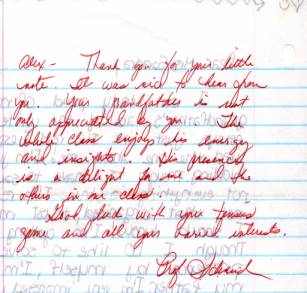 Alex - Thank you for your little
note. It was nice to hear from
you. Your grandfather is not
only appreciated by you. The
whole class enjoys his energy
and insights. His presence
is a delight for me and the
others in our class.
Good luck with your tennis
game and all your varied interests.
Prof.